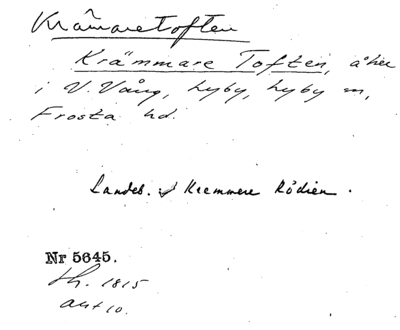 Krämaretoften
Krämmare Toften, åker
i V. Vång, Lyby, Lyby sn,
Frosta hd.
Landeb. Kremmere Rödien.
Nr 5645.
1815
akt 10.